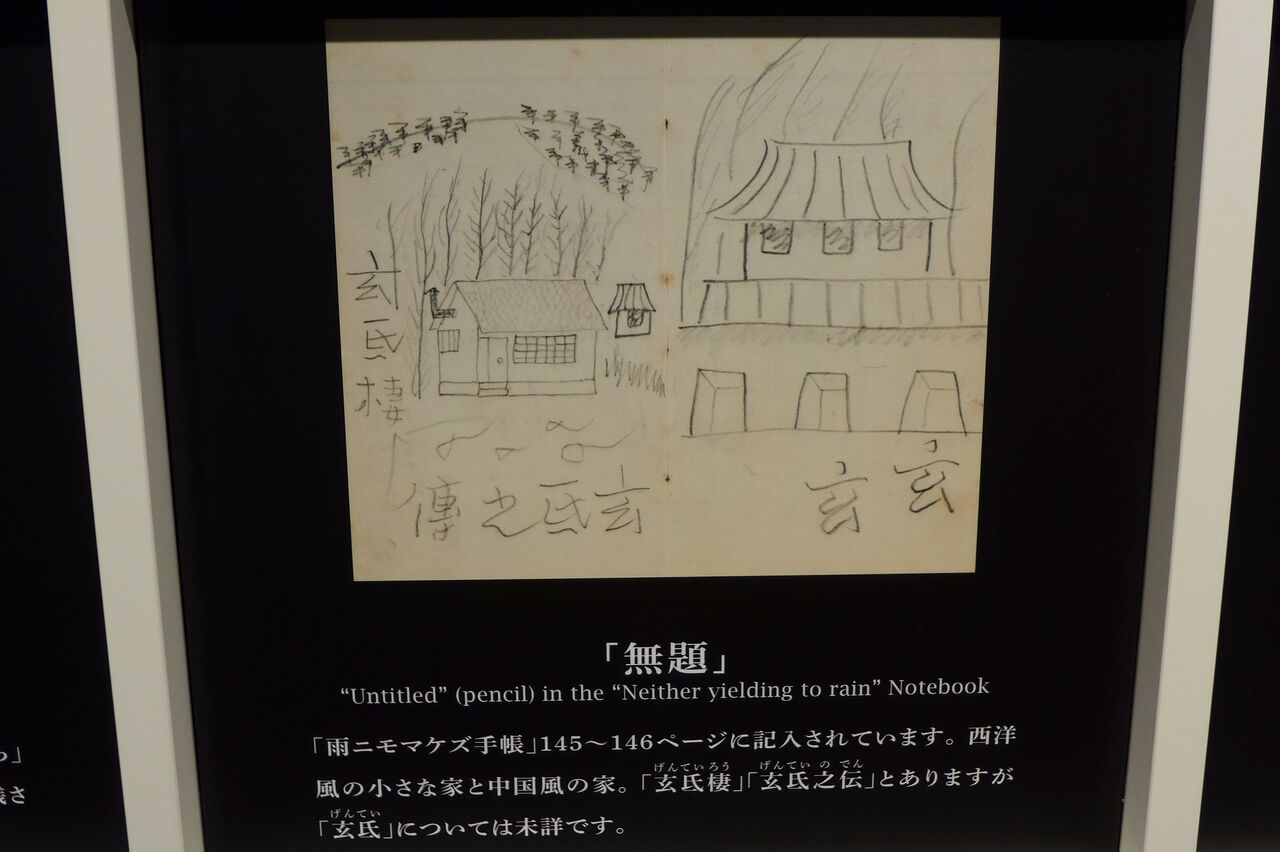 玄氐棲
玄氐之傳
玄
玄
「無題」
“Untitled” (pencil) in the “Neither yielding to rain” Notebook
「雨ニモマケズ手帳」145〜146ページに記入されています。西洋
げんていろう げんてい の でん
風の小さな家と中国風の家。「玄氐棲」「玄氐之伝」とありますが
げんてい
「玄氐」については未詳です。